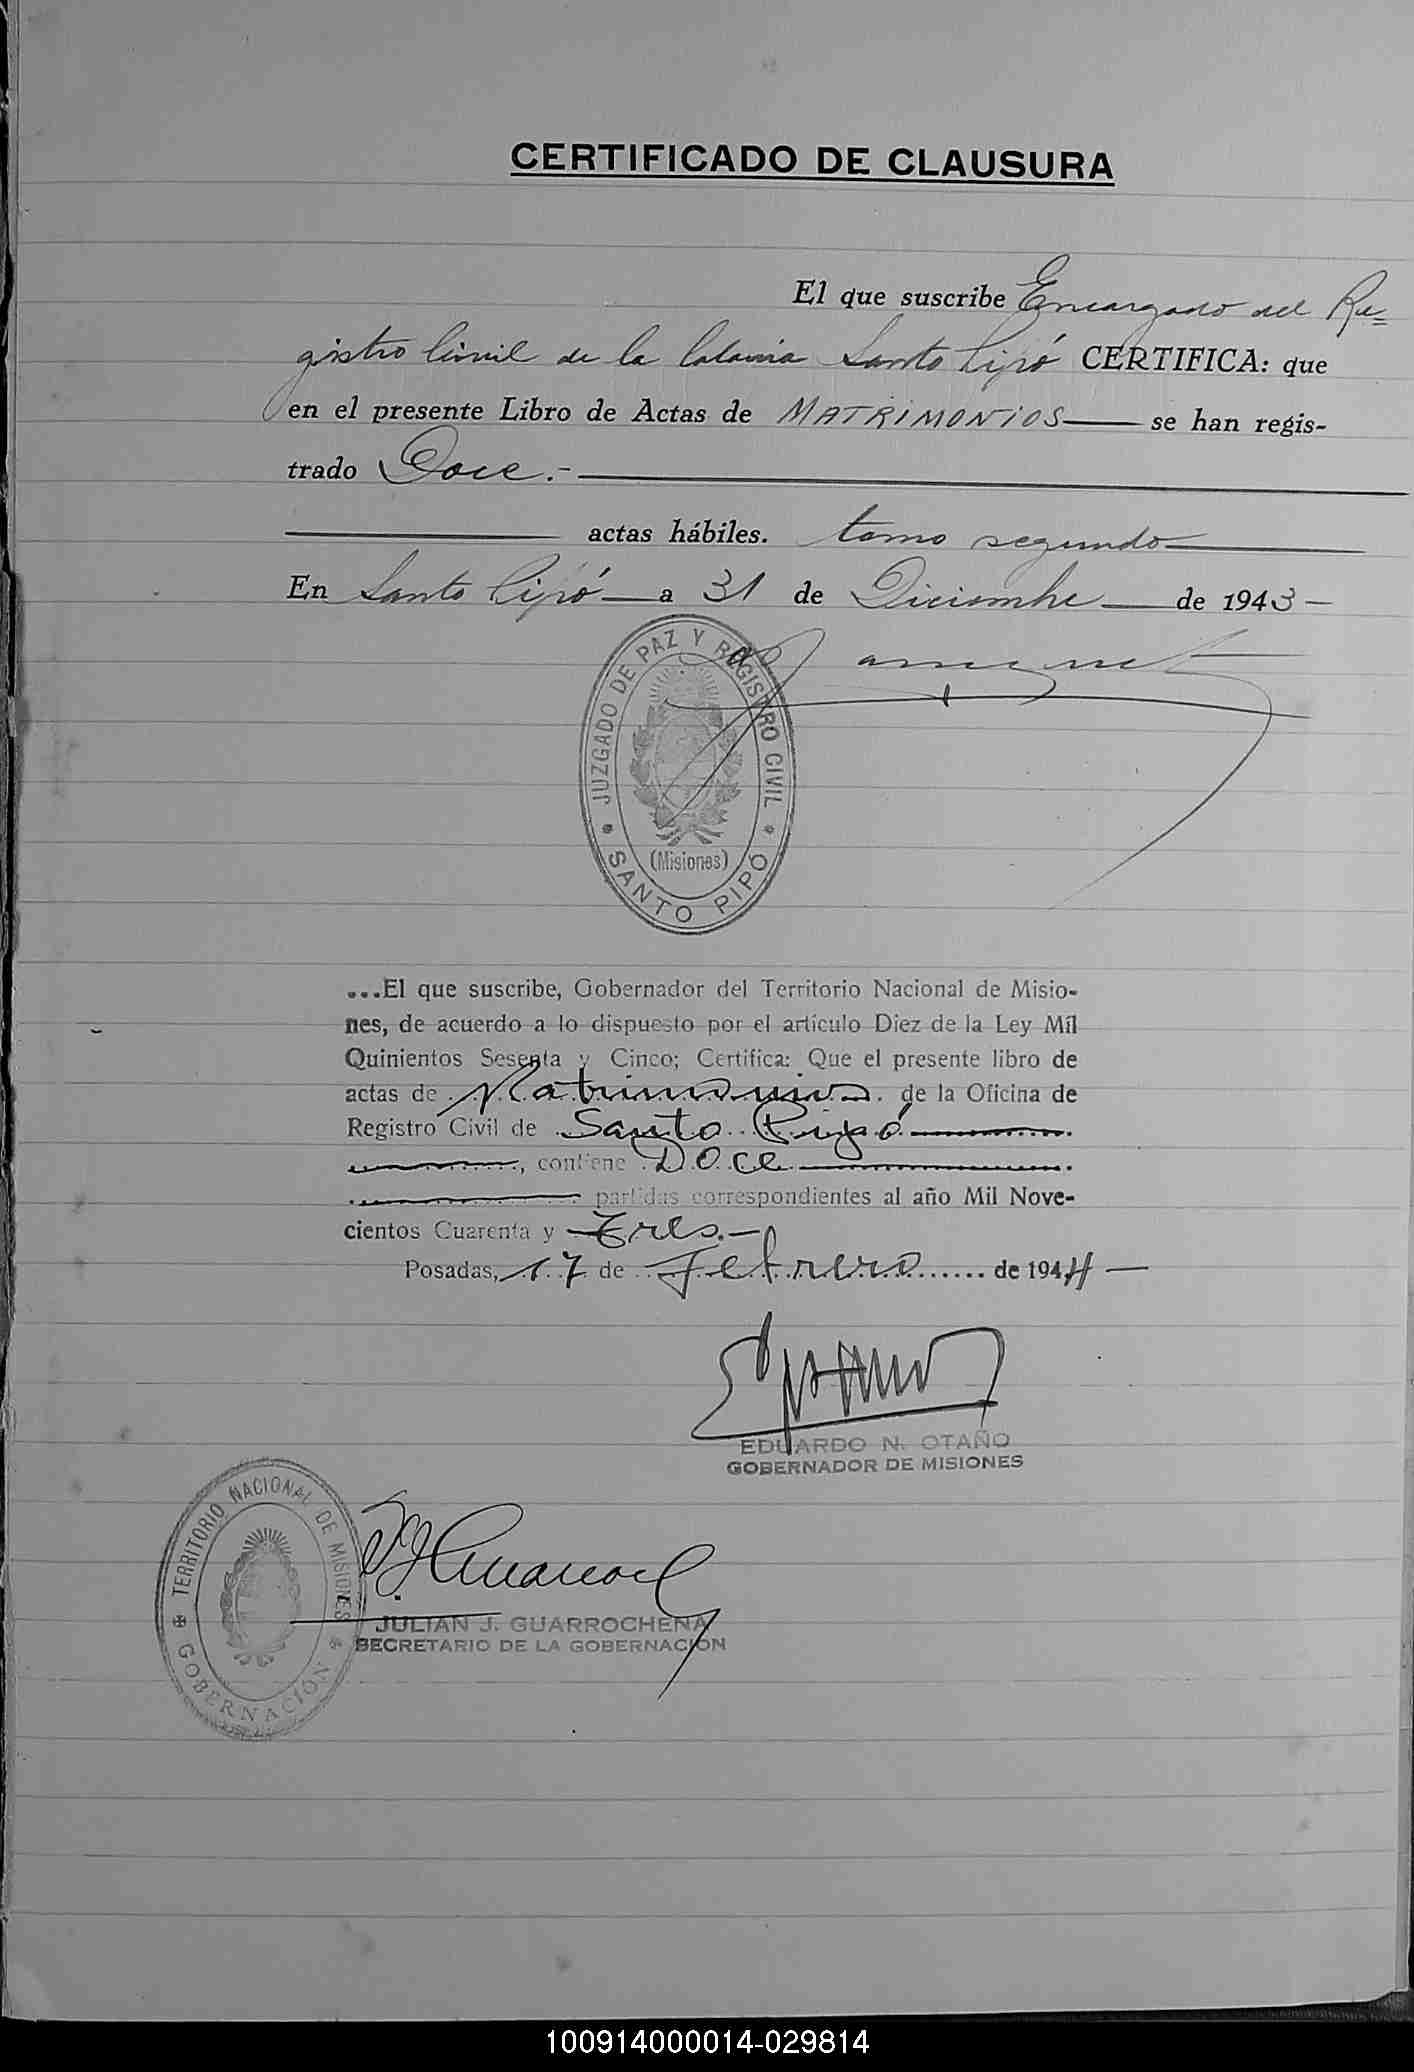 CERTIFICADO DE CLAUSURA
El que suscribe Encargado del Re=
gistro Civil de la Colonia Santo Pipó CERTIFICA: que
en el presente Libro de Actas de MATRIMONIOS se han regis-
trado Doce.-
actas hábiles. tomo segundo
En Santo Pipó a 31 de Diciembre de 1943-
JUZGADO DE PAZ Y REGISTRO CIVIL
(Misiones)
SANTO PIPÓ
...El que suscribe, Gobernador del Territorio Nacional de Misio-
nes, de acuerdo a lo dispuesto por el artículo Diez de la Ley Mil
Quinientos Sesenta y Cinco; Certifica: Que el presente libro de
actas de Matrimonios de la Oficina de
Registro Civil de Santo Pipó
, contiene Doce
partidas correspondientes al año Mil Nove-
cientos Cuarenta y Tres.-
Posadas, 17 de Febrero de 1944-
EDUARDO N. OTAÑO
GOBERNADOR DE MISIONES
TERRITORIO NACIONAL DE MISIONES
GOBERNACIÓN
JULIAN J. GUARROCHENA
SECRETARIO DE LA GOBERNACIÓN
100914000014-029814